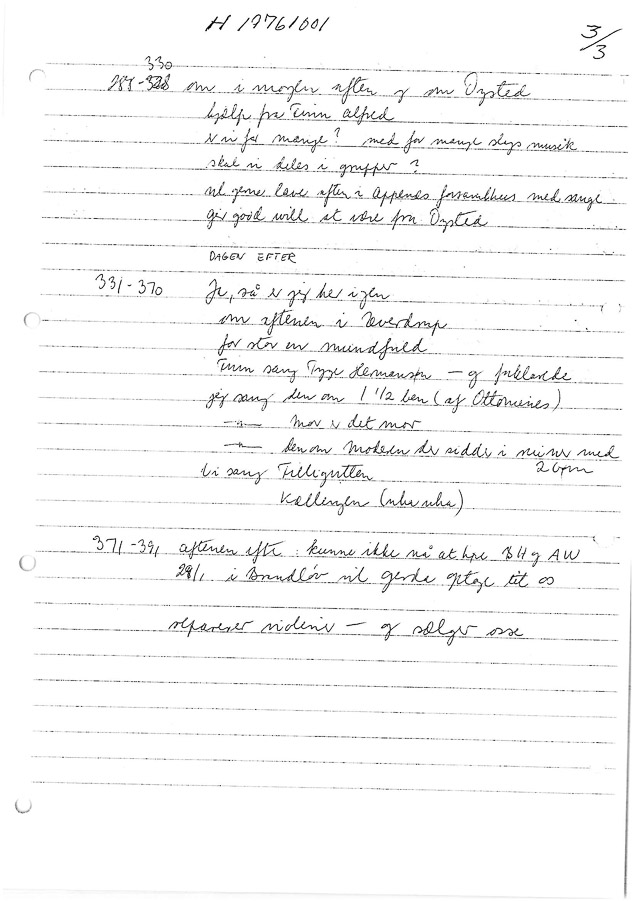 H 19761001
3/3
330
288-328 om i morgen aften og om Dysted
hjælp fra Finn Alfred
er vi for mange? med for mange slags musik
skal vi deles i grupper?
vil gerne lave aften i Appenæs forsamlhus med sange
gir good will at være fra Dysted
DAGEN EFTER
331-370 Ja, så er jeg her igen
om aftenen i Tværdrup
for stor en mundfuld
Finn sang Tyge Hermansen – og forklarede
jeg sang den om 1 1/2 ben (af
—"— Mor er det mor
—"— den om Moderen der sidder i ruiner med
2 børn
Vi sang Tilligutten
Kællingen (uha uha)
371-391 aftenen efter: kunne ikke nå at høre BH og AW
29/1 i Brandlev vil Gerda optage til os
reparerer violiner – og sælger osse